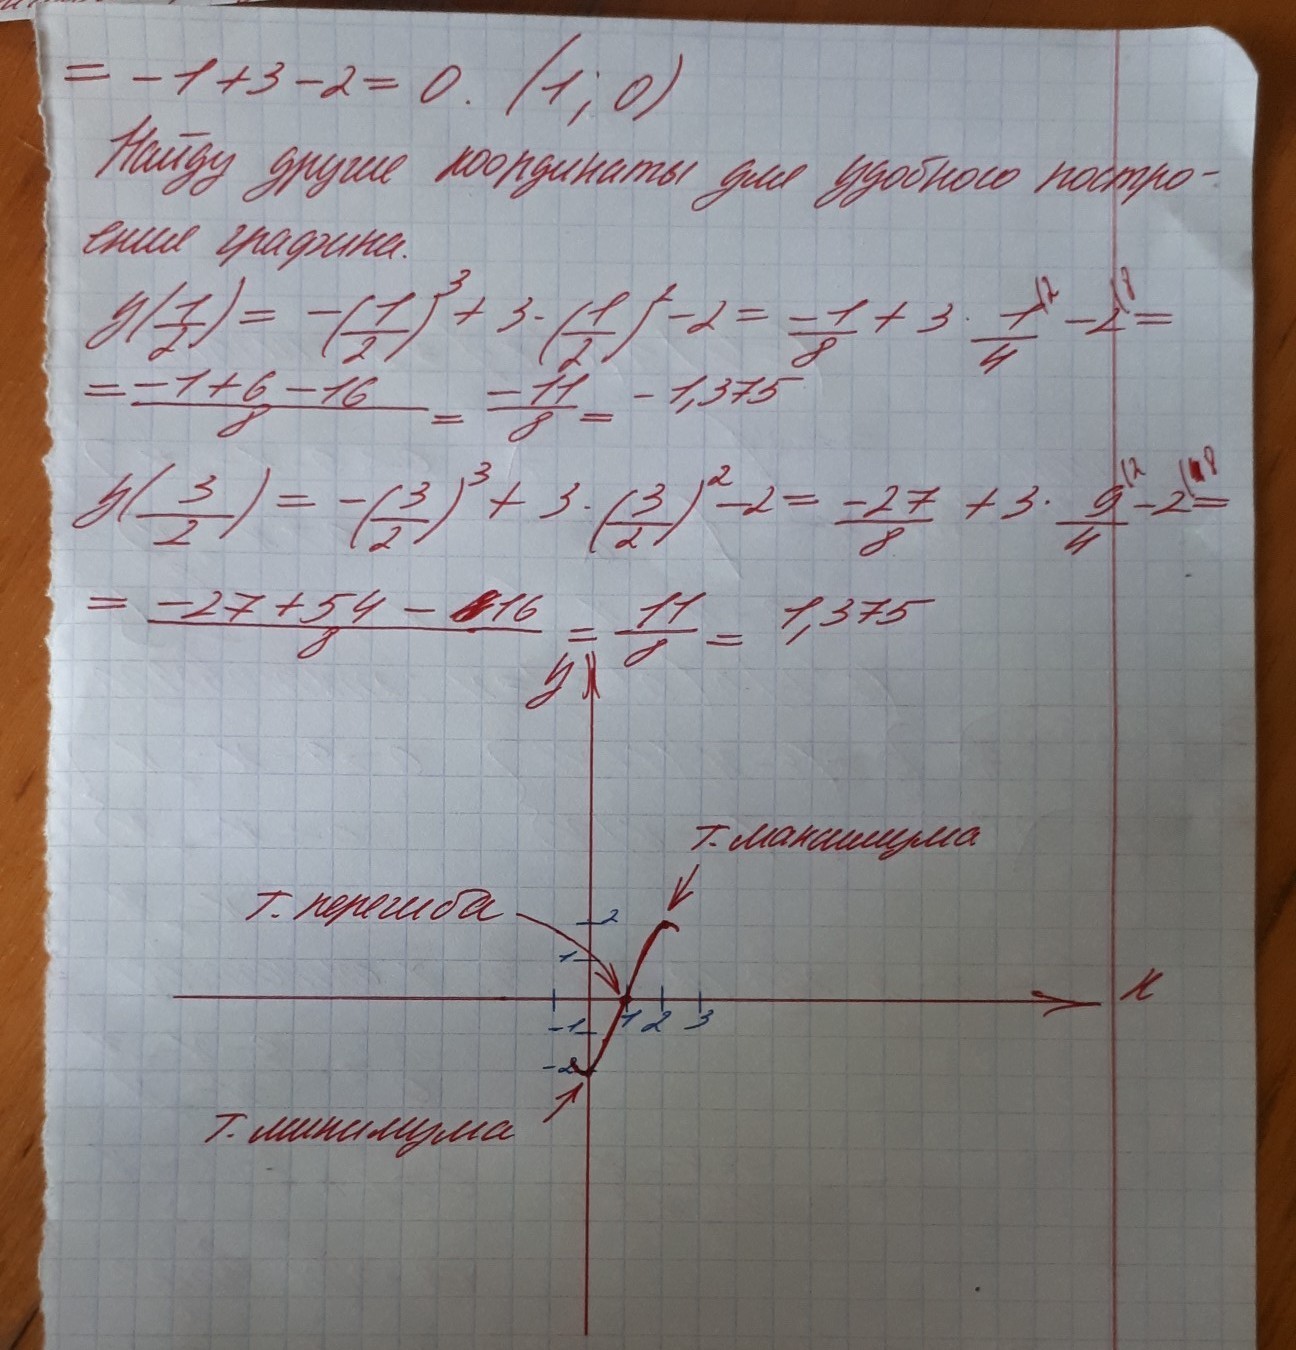 = -1+3-2=0. (1; 0)
Найду другие координаты для удобного постро-
ения графика.
y(1/2) = -(1/2)^3 + 3·(1/2)^2 -2 = -1/8 + 3· 1/4 \2 -2 \8 =
= (-1+6-16)/8 = -11/8 = -1,375
y(3/2) = -(3/2)^3 + 3·(3/2)^2 -2 = -27/8 +3· 9/4 \2 -2 \8 =
= (-27+54-16)/8 = 11/8 = 1,375
y
т. максимума
т. перегиба
2
1
x
-1
1 2 3
-2
т. минимума